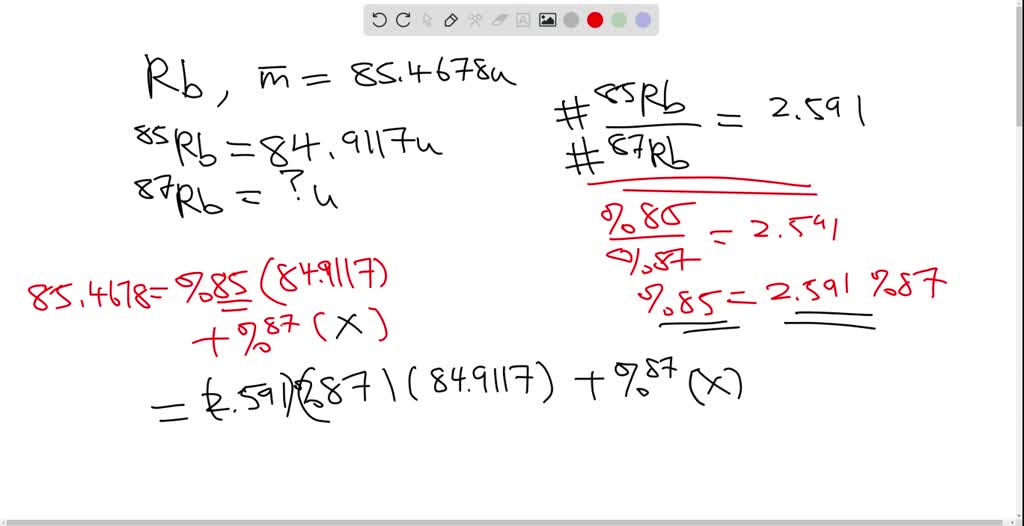 Rb, m̅ = 85.4678u
⁸⁵Rb = 84.9117u
⁸⁷Rb = ? u
# ⁸⁵Rb
# ⁸⁷Rb = 2.591
%85
%87 = 2.591
%85 = 2.591 %87
85.4678 = %85 (84.9117)
+ %⁸⁷ (X)
= (2.591)(%87)(84.9117) + %⁸⁷ (X)